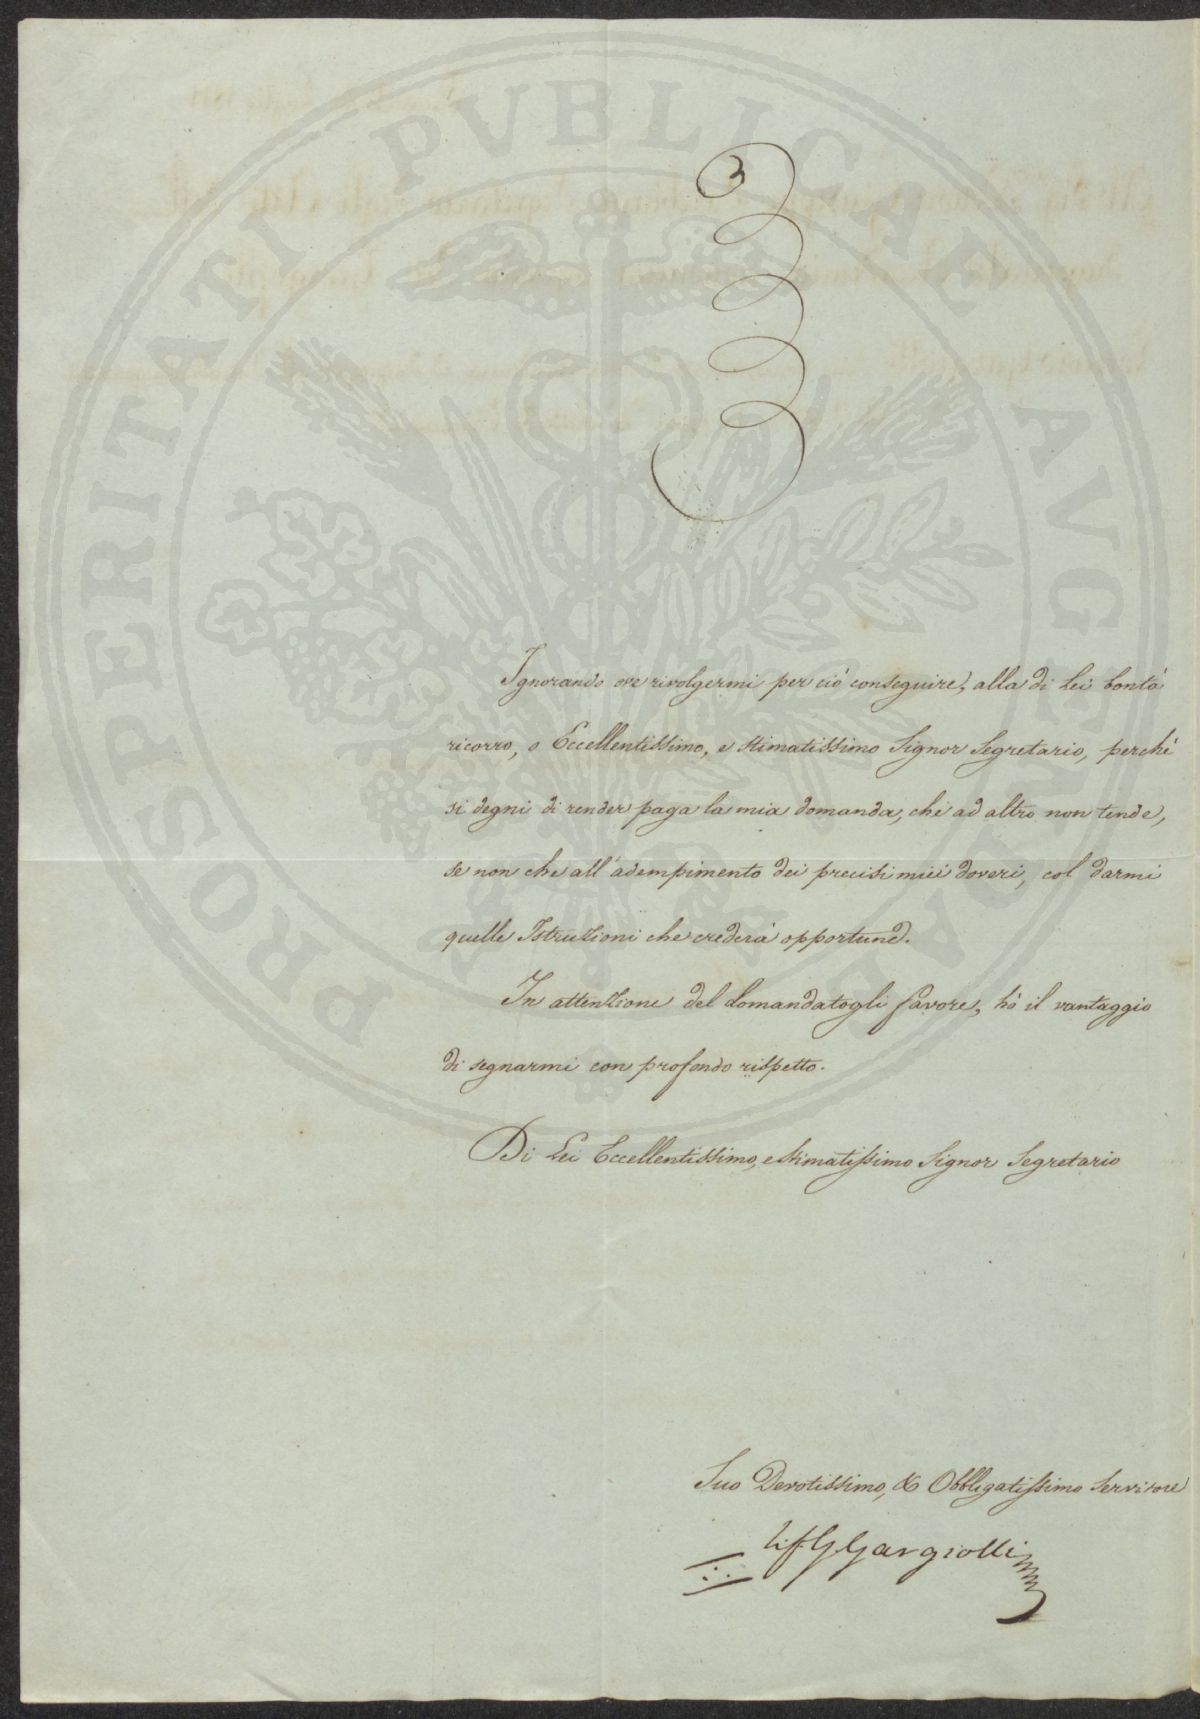 PROSPERITATI PVBLICAE AVGENDAE
Ignorando ove rivolgermi per ciò conseguire, alla di Lei bontà
ricorro, o Eccellentissimo, e stimatissimo Signor Segretario, perchè
si degni di render paga la mia domanda, chè ad altro non tende,
se non che all'adempimento dei precisi miei doveri, col darmi
quelle Istruzioni che crederà opportune.
In attenzione del domandatogli favore, hò il vantaggio
di segnarmi con profondo rispetto.
Di Lei Eccellentissimo, e stimatissimo Signor Segretario
Suo Devotissimo, & Obbligatissimo Servitore
Gargiolli